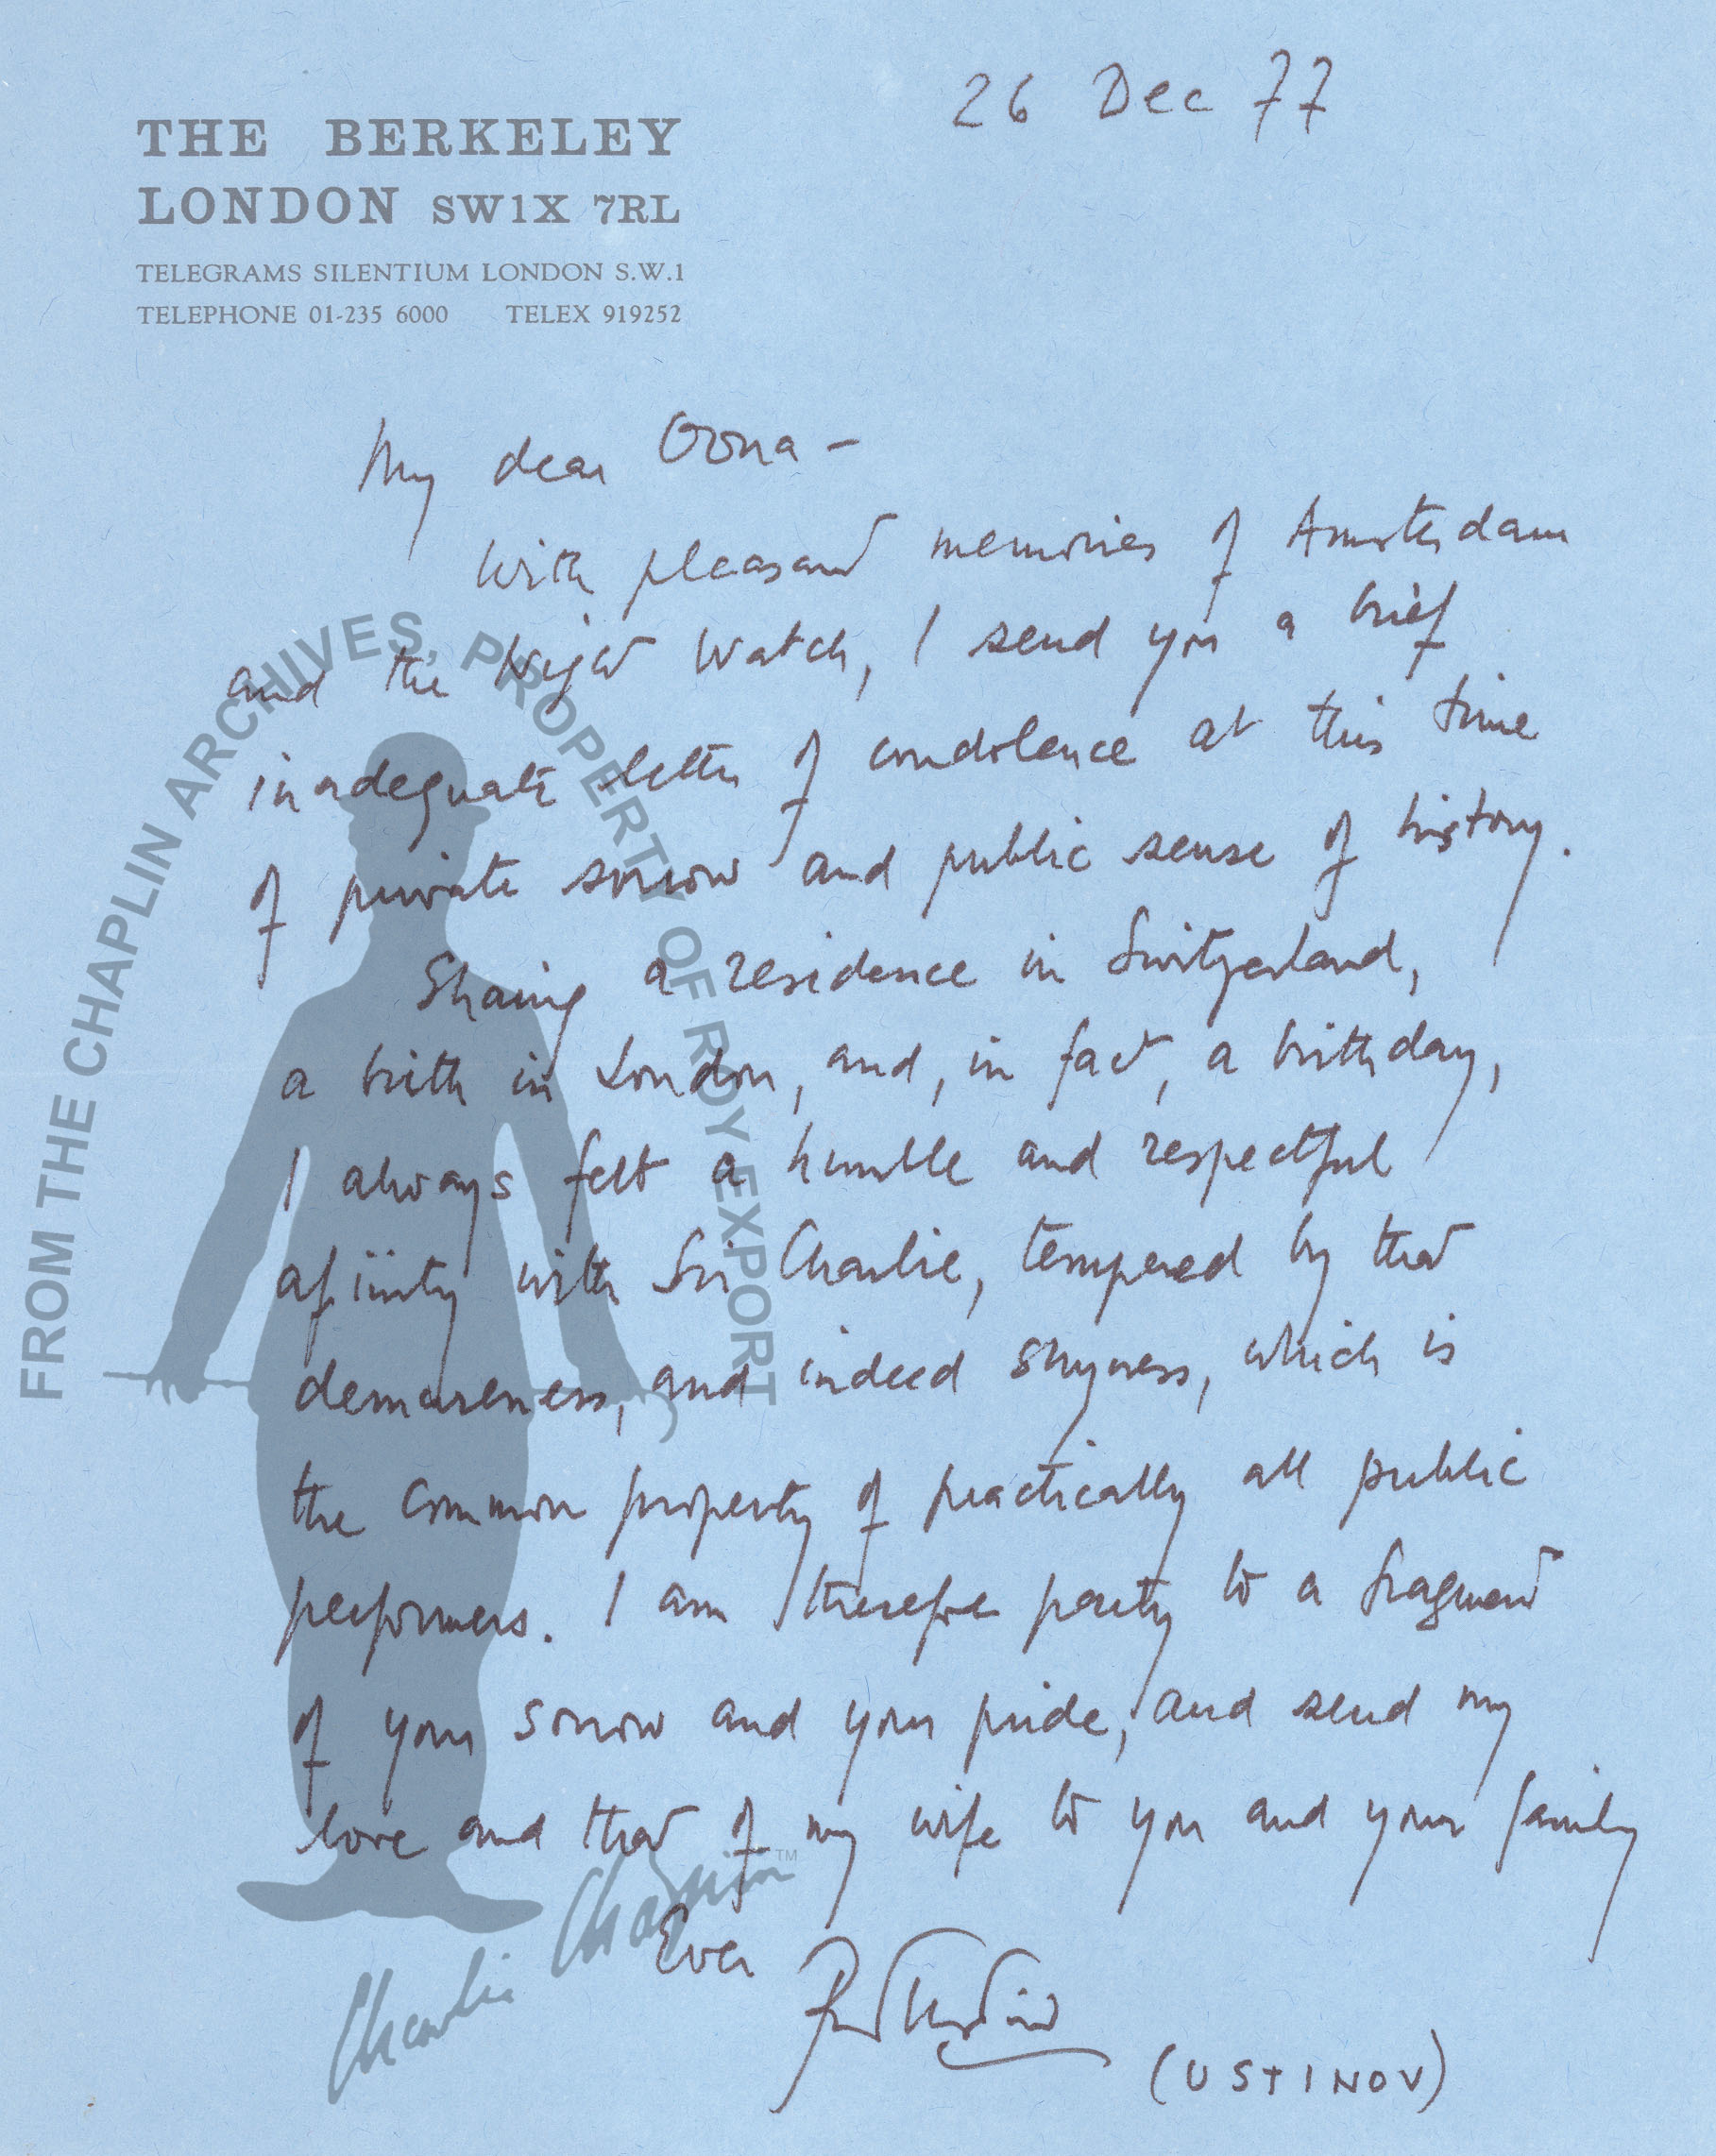 26 Dec 77
THE BERKELEY
LONDON SW1X 7RL
TELEGRAMS SILENTIUM LONDON S.W.1
TELEPHONE 01-235 6000 TELEX 919252
My dear Oona –
With pleasant memories of Amsterdam
and the Night Watch, I send you a brief
inadequate letter of condolence at this time
of private sorrow and public sense of history.
Sharing a residence in Switzerland,
a birth in London, and, in fact, a birthday,
I always felt a humble and respectful
afinity with Sir Charlie, tempered by that
demureness, and indeed shyness, which is
the common property of practically all public
performers. I am therefore party to a fragment
of your sorrow and your pride, and send my
love and that of my wife to you and your family
Ever Peter Ustinov
(USTINOV)
FROM THE CHAPLIN ARCHIVES, PROPERTY OF ROY EXPORT
Charlie Chaplin TM